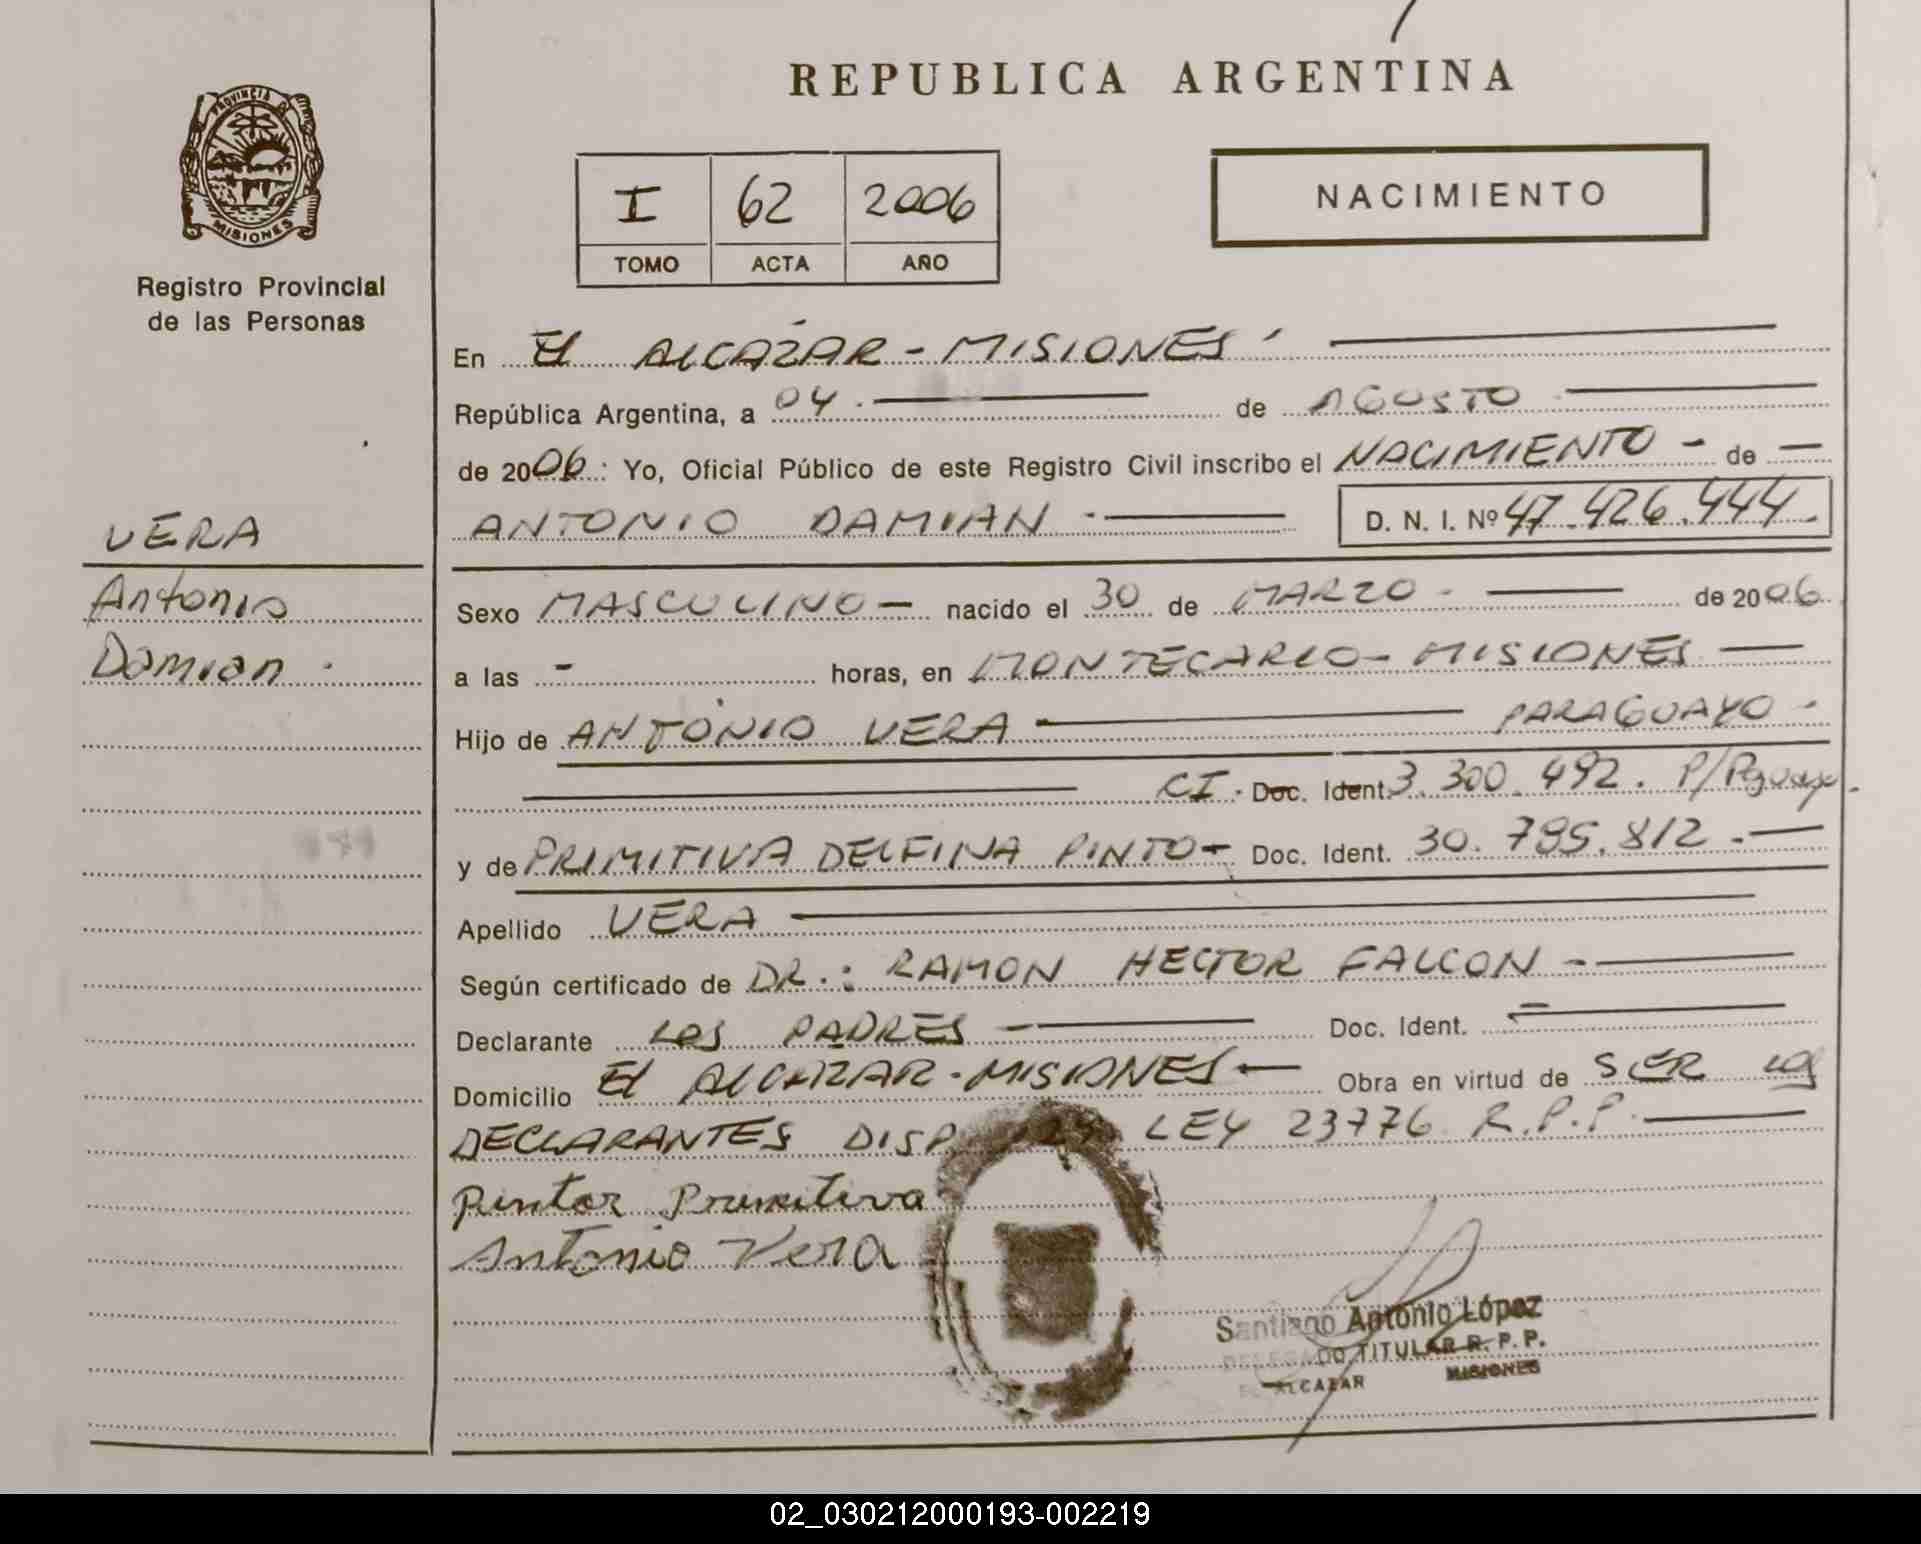 REPUBLICA ARGENTINA
PROVINCIA DE
MISIONES
Registro Provincial
de las Personas
I 62 2006
TOMO ACTA AÑO
NACIMIENTO
En El ALCAZAR - MISIONES
República Argentina, a 04 de AGOSTO
de 2006: Yo, Oficial Público de este Registro Civil inscribo el NACIMIENTO - de -
ANTONIO DAMIAN - D. N. I. Nº 47.426.444.
VERA
Antonio
Damian.
Sexo MASCULINO - nacido el 30 de MARZO - de 2006
a las - horas, en MONTECARLO - MISIONES
Hijo de ANTONIO VERA PARAGUAYO -
CI. Doc. Ident. 3.300.492. P/Pguayo.
y de PRIMITIVA DELFINA PINTO - Doc. Ident. 30.795.812.-
Apellido VERA
Según certificado de DR.: RAMON HECTOR FALCON -
Declarante Los PADRES - Doc. Ident.
Domicilio El ALCAZAR - MISIONES - Obra en virtud de SER los
DECLARANTES DISP. LEY 23776 R.P.P.
Pintos Primitiva
Antonio Vera
Santiago Antonio López
DELEGADO TITULAR R. P. P.
EL ALCAZAR MISIONES
02_030212000193-002219